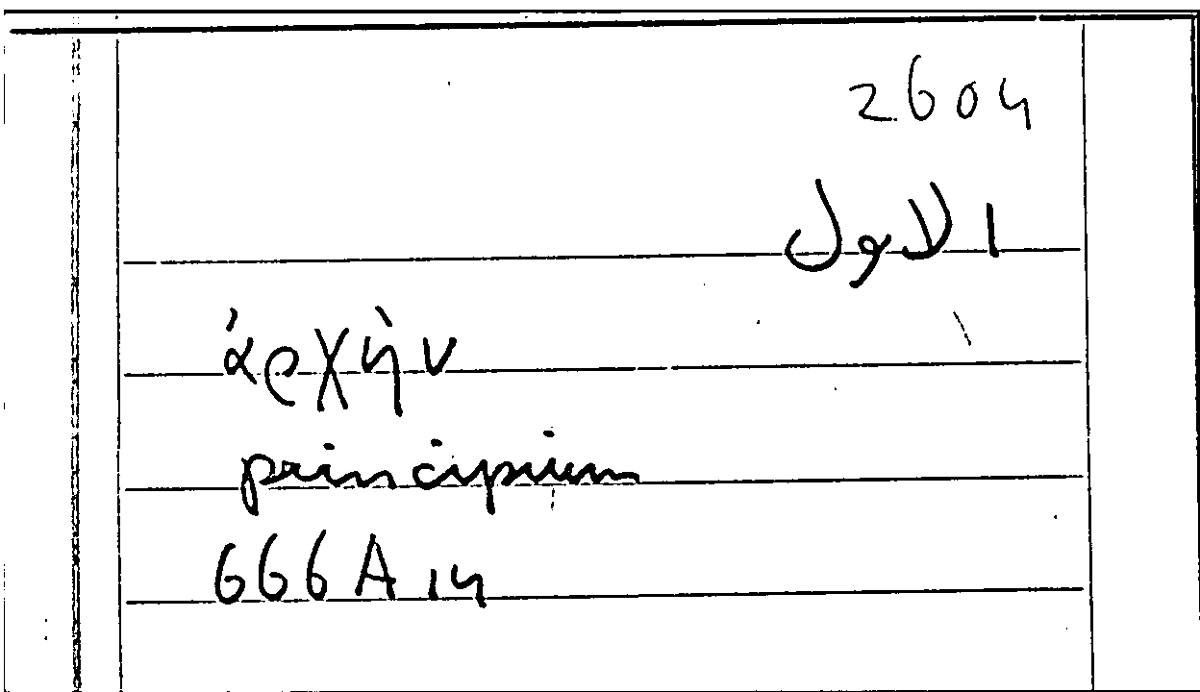 2604
الاول
ἀρχὴν
principium
666A14